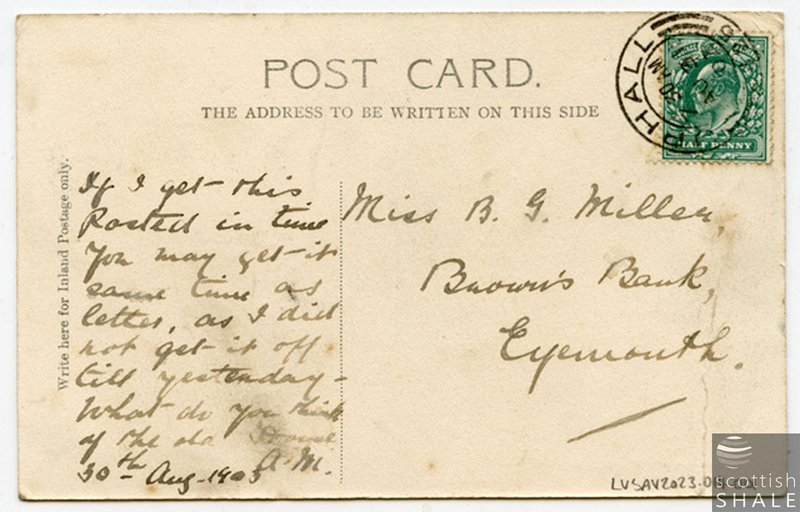 POST CARD.
THE ADDRESS TO BE WRITTEN ON THIS SIDE
HALF PENNY
Write here for Inland Postage only.
If I get this
Posted in time
You may get it
same time as
letter, as I did
not get it off
till yesterday-
What do you think
of the old House
A.M.
30th Aug-1903
Miss B. G. Miller,
Brown's Bank,
Eyemouth.
LVSAV2023.0
scottish
SHALE